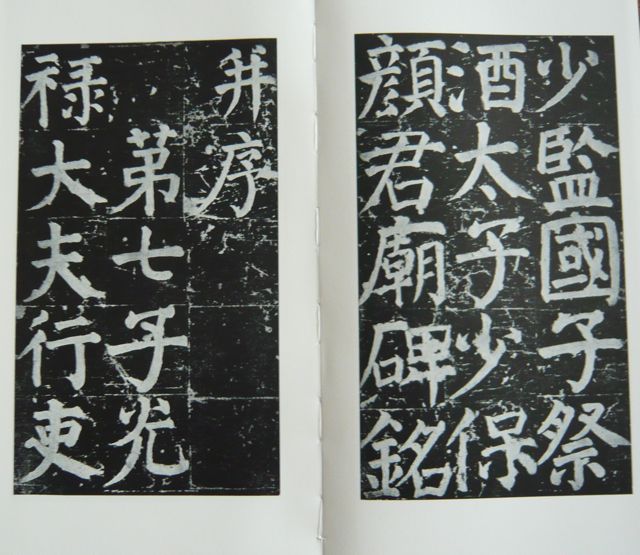 少監國子祭
酒太子少保
顏君廟碑銘
并序
第七子光
禄大夫行吏